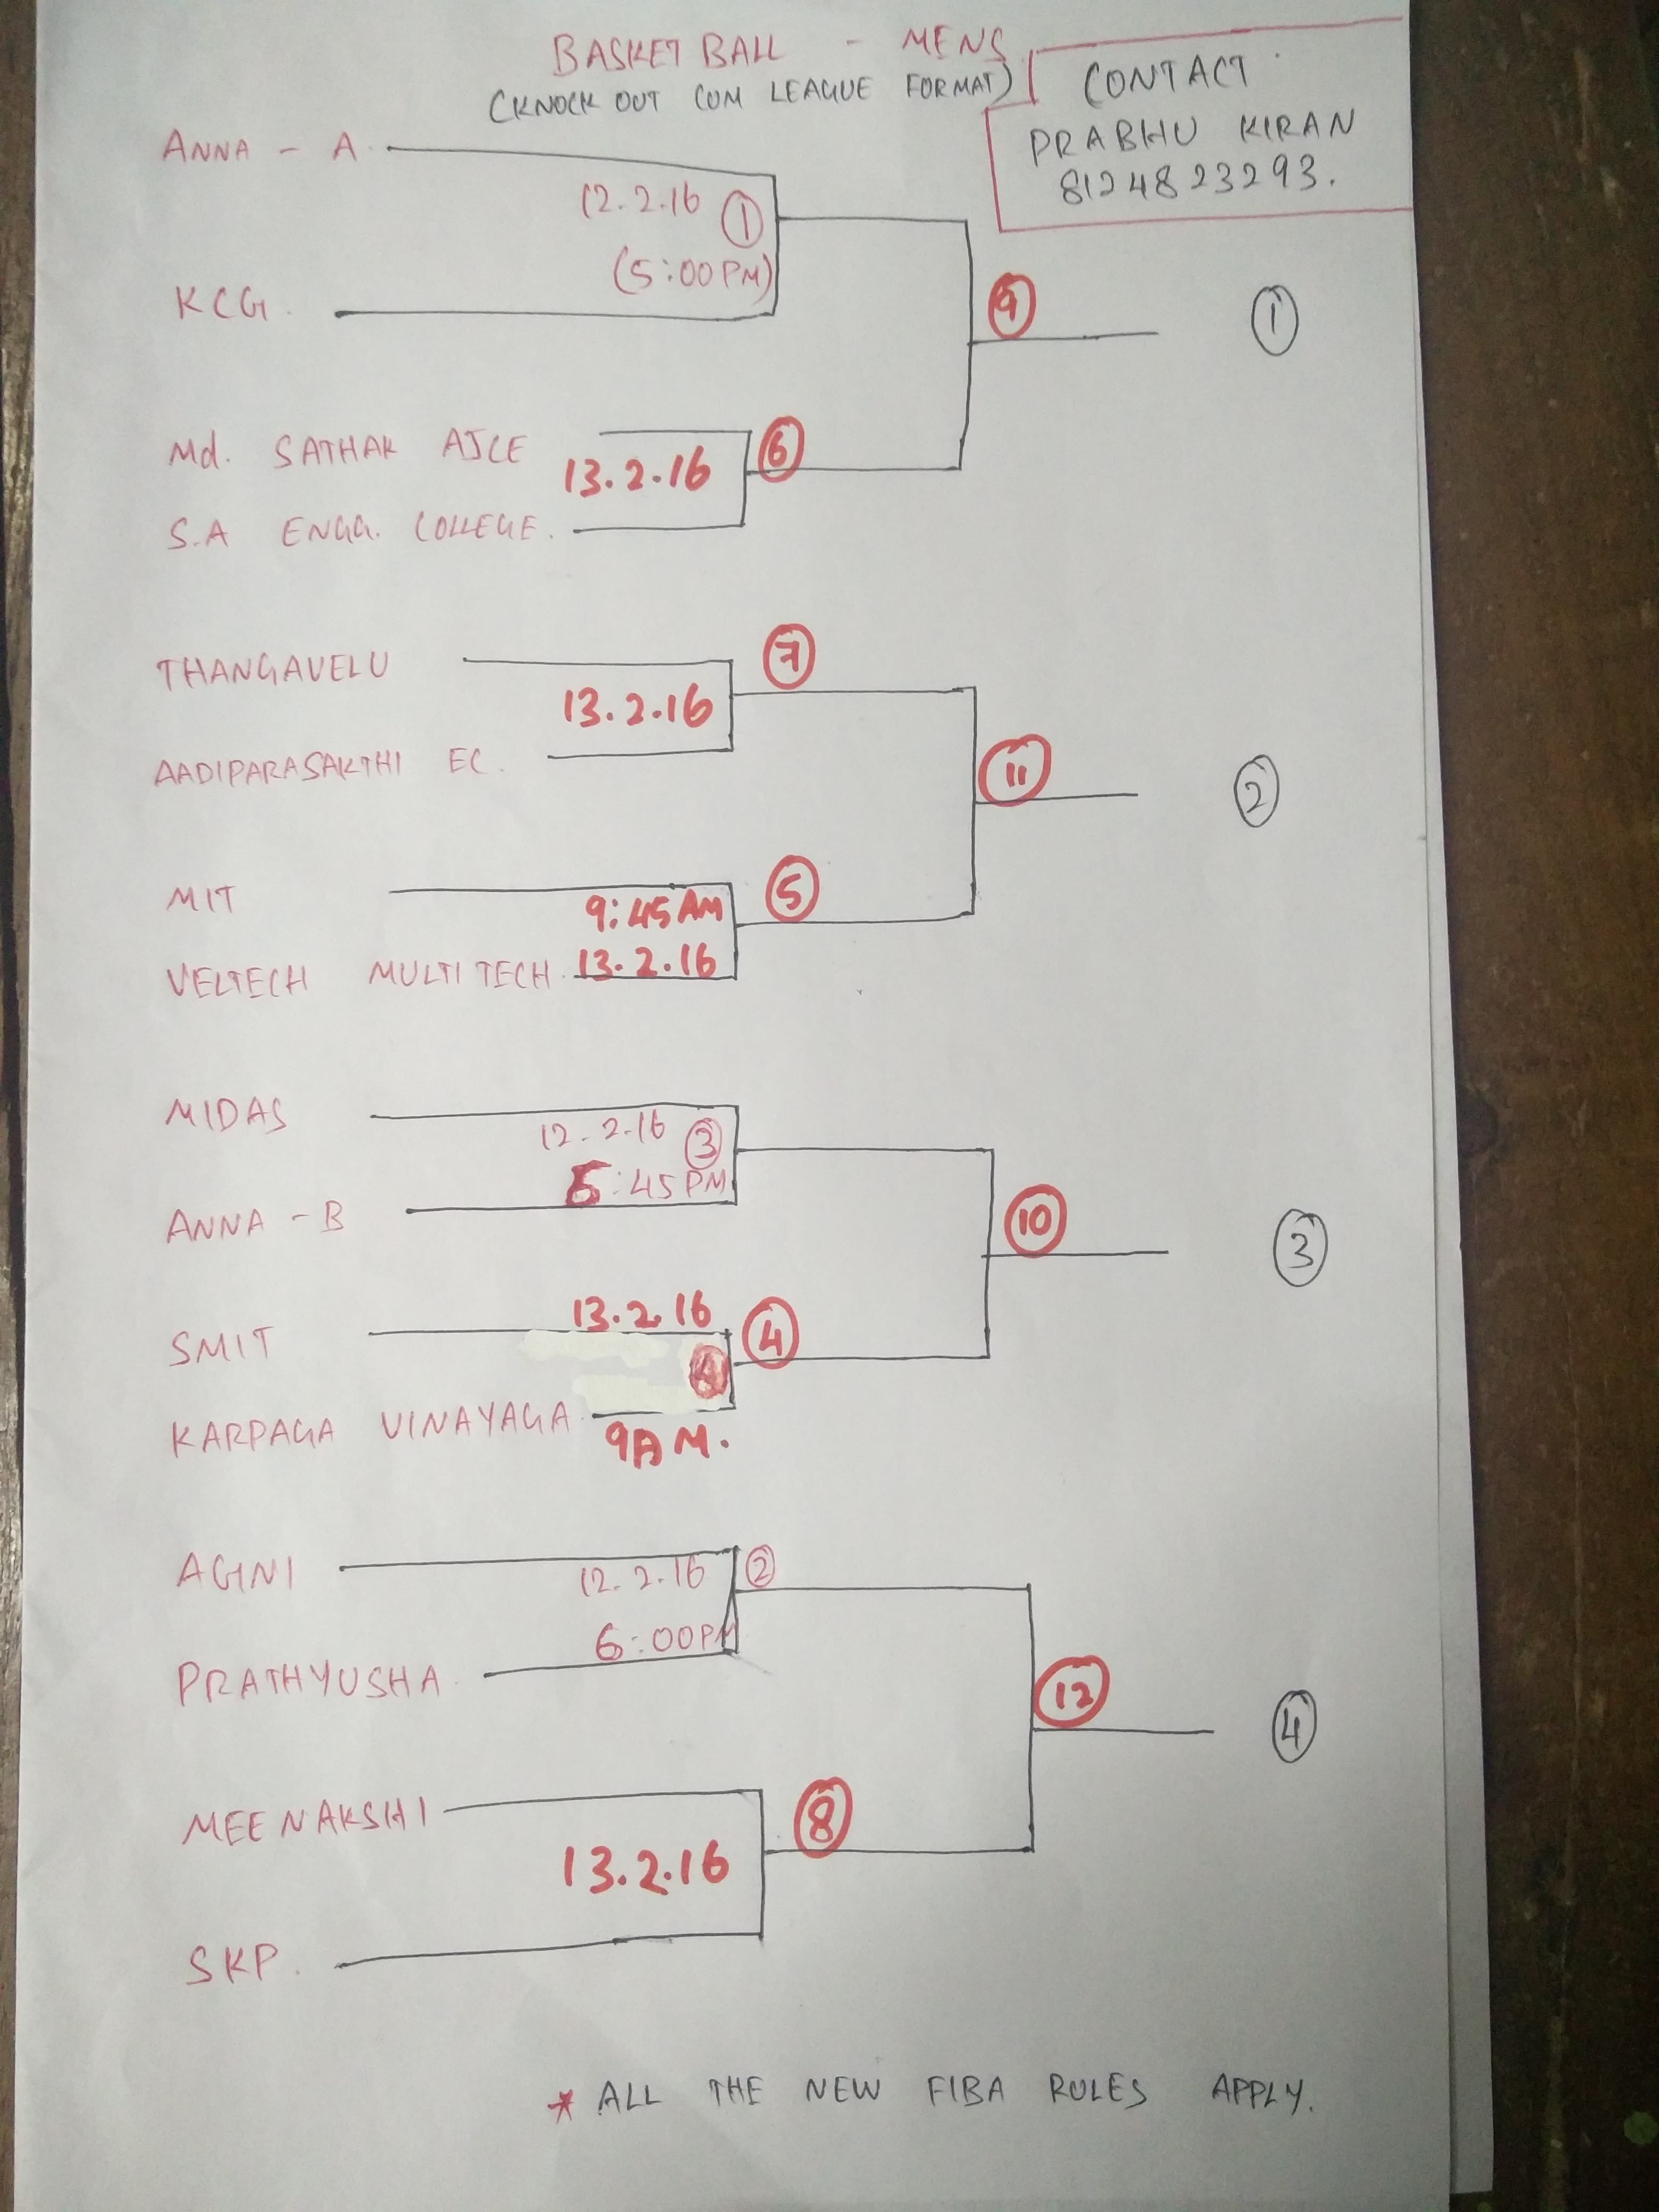 BASKET BALL - MENS
(KNOCK OUT CUM LEAGUE FORMAT)
CONTACT
PRABHU KIRAN
8124823293.
ANNA - A
12.2.16 1
(5:00PM)
KCG.
9
1
Md. SATHAK AJCE
6
13.2.16
S.A ENGG. COLLEGE.
THANGAVELU
7
13.2.16
AADIPARASAKTHI EC.
11
2
MIT
5
9:45AM
VELTECH MULTITECH. 13.2.16
MIDAS
12.2.16 3
:45PM
ANNA - B
10
3
13.2.16
SMIT
4
KARPAGA VINAYAGA.
9AM.
AGNI
12.2.16 2
6:00PM
PRATHYUSHA
12
4
MEENAKSHI
8
13.2.16
SKP.
* ALL THE NEW FIBA RULES APPLY.